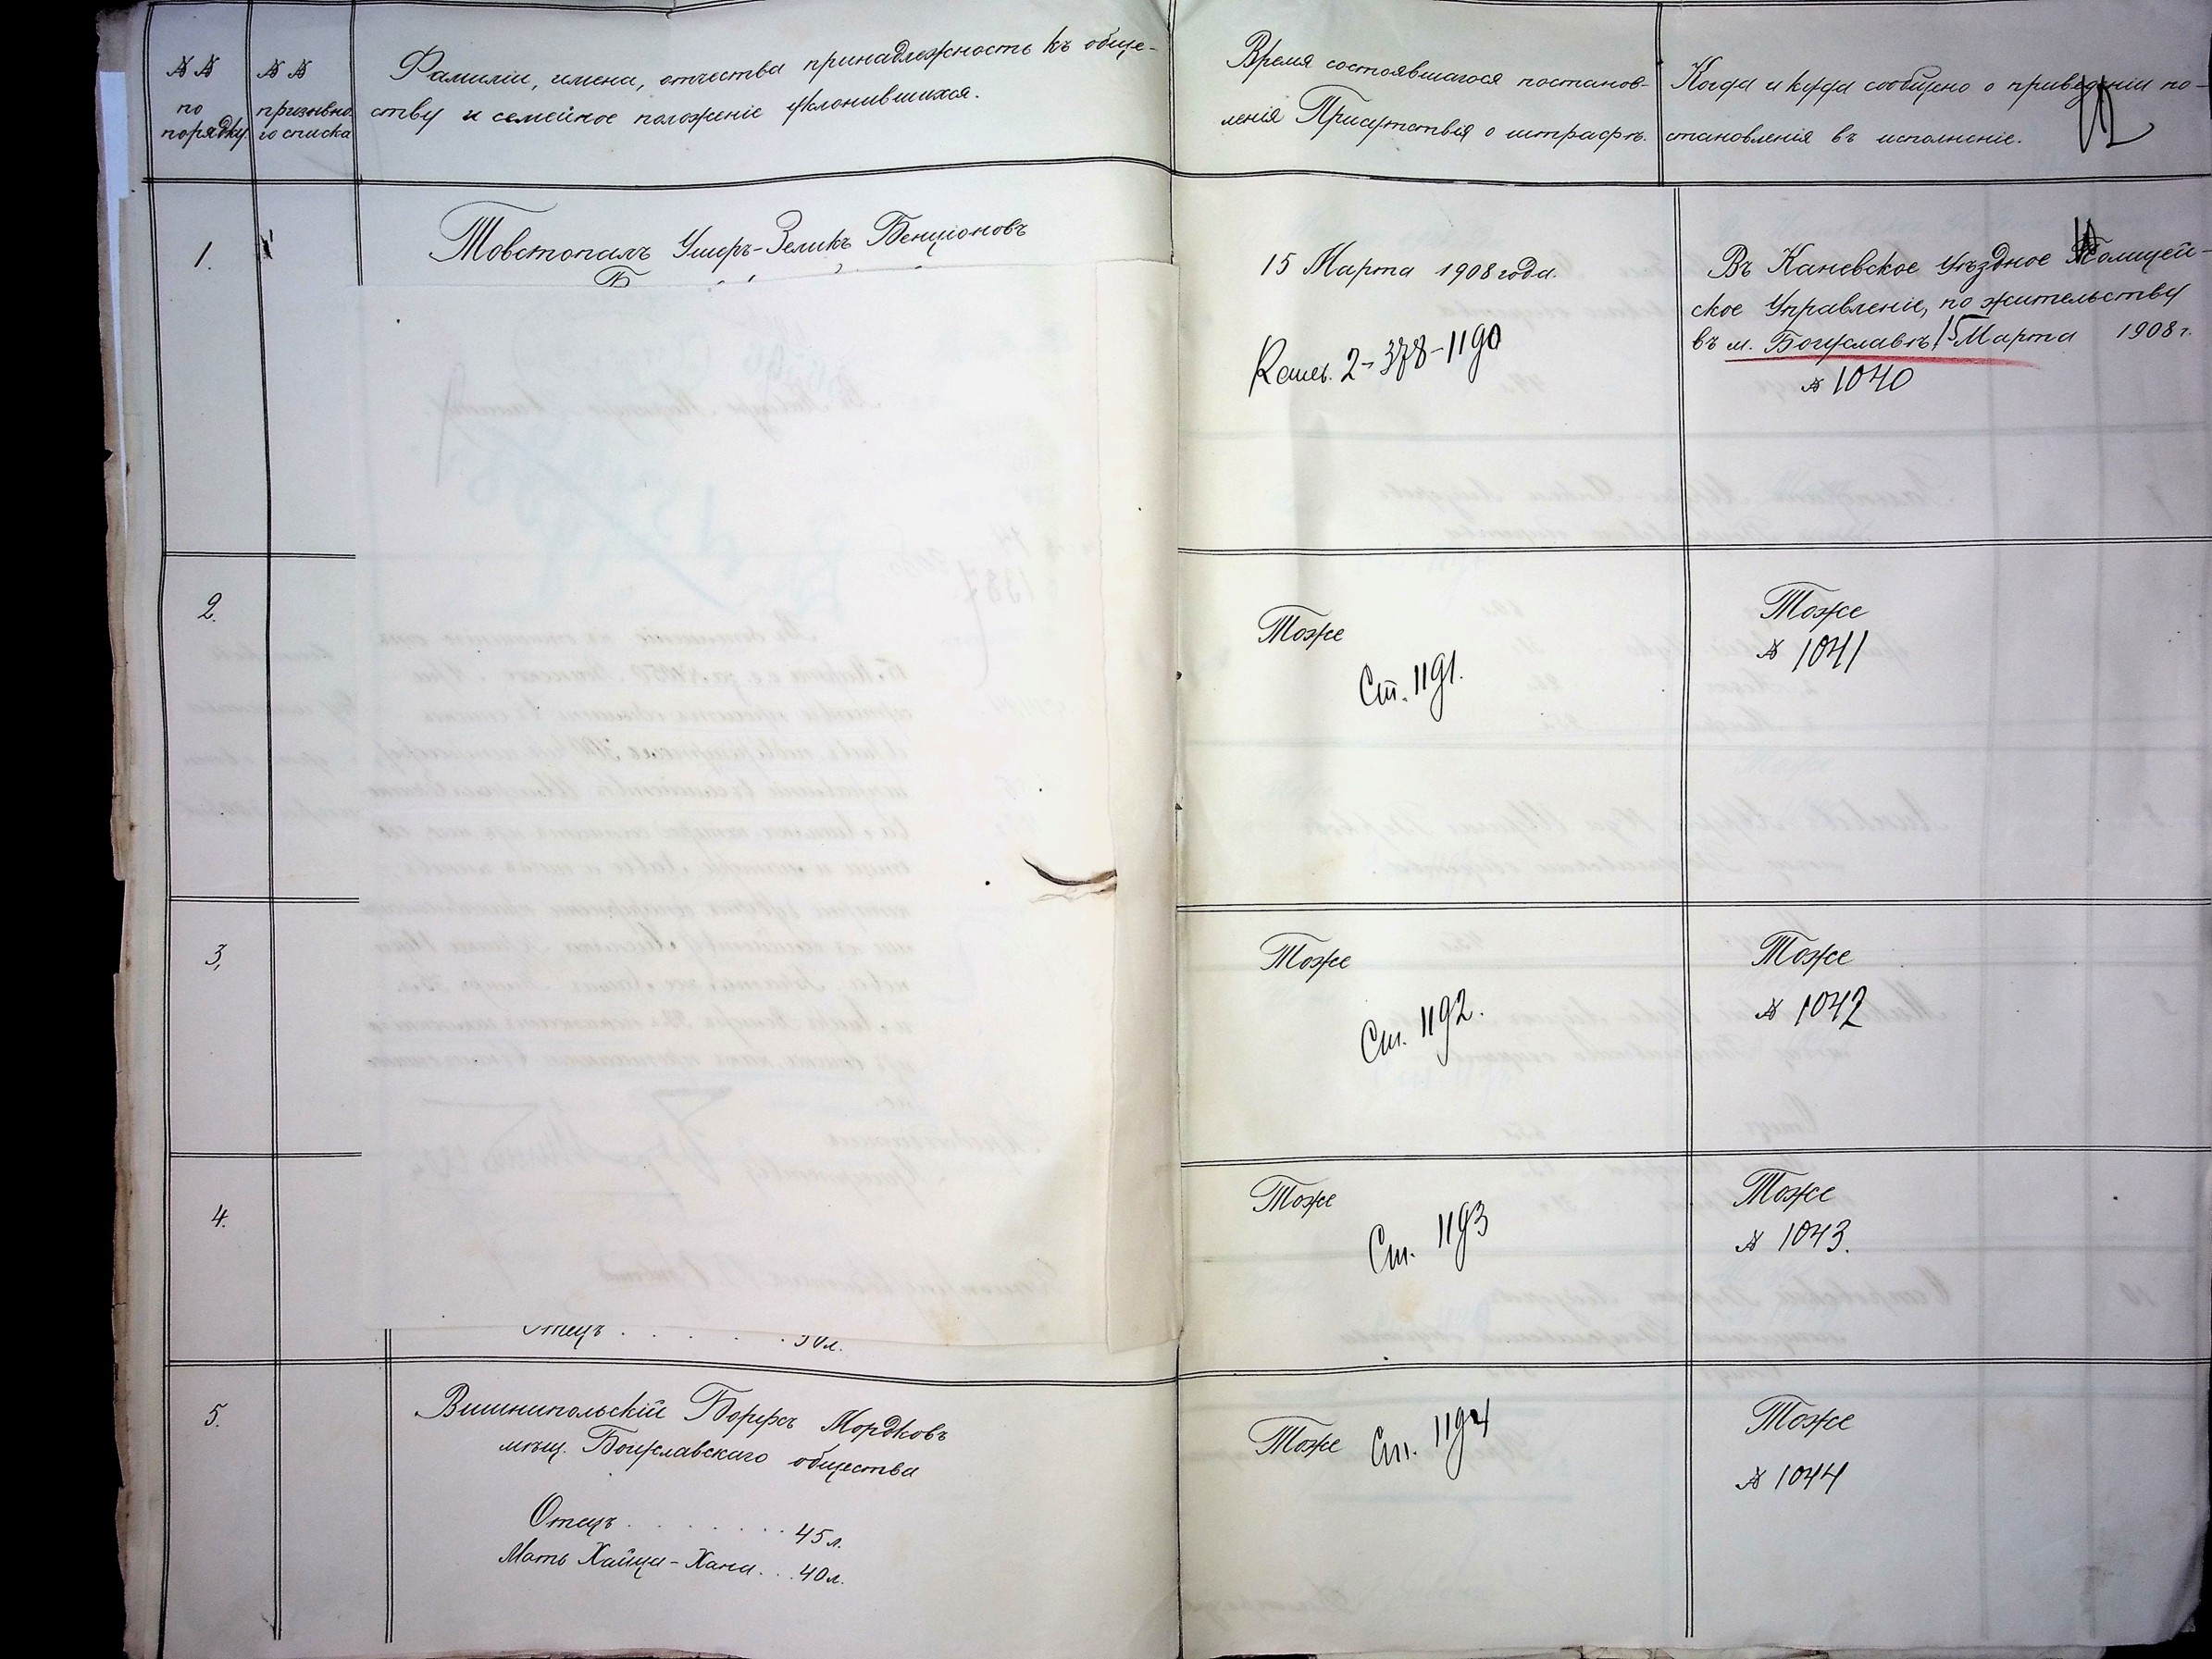 №№
по
порядку
№№
призывно-
го списка
Фамиліи, имена, отчества принадлежность къ обще-
ству и семейное положеніе уклонившихся.
Время состоявшагося постанов-
ленія Присутствія о штрафѣ.
Когда и куда сообщено о приведеніи по-
становленія въ исполненіе.
1.
Товстопалъ Ушеръ-Зеликъ Бенціоновъ
15 Марта 1908 года.
2-378-1190
Въ Каневское Уѣздное Полицей-
ское Управленіе, по жительству
въ м. Богуславѣ 15 Марта 1908 г.
№ 1040
2.
Тоже
Ст. 1191.
Тоже
№ 1041
3,
Тоже
Ст. 1192.
Тоже
№ 1042
4.
Тоже
Ст. 1193
Тоже
№ 1043.
Отецъ . . . . 50 л.
5.
Вишнипольскій Борухъ Мордковъ
мѣщ. Богуславскаго общества
Отецъ . . . . . . . 45 л.
Мать Хайца-Хана. . . 40 л.
Тоже Ст. 1194
Тоже
№ 1044